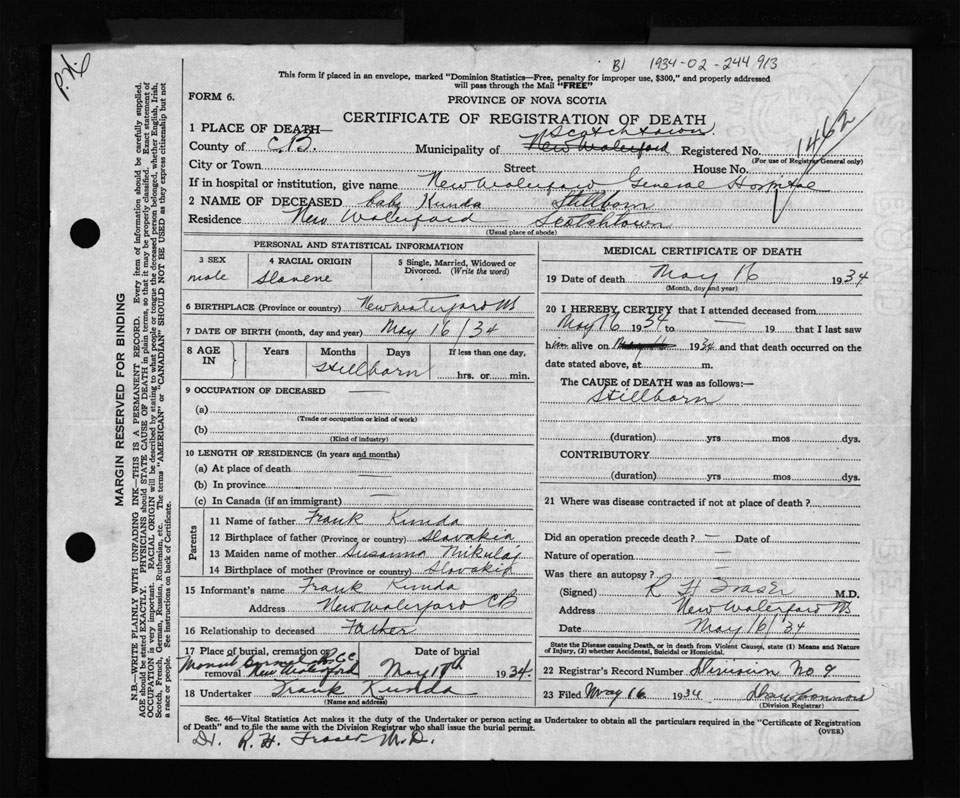 B1 1934-02-244913
This form if placed in an envelope, marked "Dominion Statistics—Free, penalty for improper use, $300," and properly addressed
will pass through the Mail "FREE"
FORM 6.
PROVINCE OF NOVA SCOTIA
CERTIFICATE OF REGISTRATION OF DEATH
1 PLACE OF DEATH—
Scotchtown
County of C.B. Municipality of New Waterford Registered No. 1462
(For use of Registrar General only)
City or Town Street House No.
If in hospital or institution, give name New Waterford General Hospital
2 NAME OF DECEASED baby Kunda Stillborn
Residence New Waterford Scotchtown
(Usual place of abode)
PERSONAL AND STATISTICAL INFORMATION
3 SEX 4 RACIAL ORIGIN 5 Single, Married, Widowed or
Divorced. (Write the word)
male Slavene
6 BIRTHPLACE (Province or country) New Waterford NS
7 DATE OF BIRTH (month, day and year) May 16/34
8 AGE IN Years Months Days If less than one day,
Stillborn hrs. or min.
9 OCCUPATION OF DECEASED
(a)
(Trade or occupation or kind of work)
(b)
(Kind of industry)
10 LENGTH OF RESIDENCE (in years and months)
(a) At place of death
(b) In province
(c) In Canada (if an immigrant)
Parents
11 Name of father Frank Kunda
12 Birthplace of father (Province or country) Slovakia
13 Maiden name of mother Susanna Mikulaj
14 Birthplace of mother (Province or country) Slovakia
15 Informant's name Frank Kunda
Address New Waterford CB
16 Relationship to deceased Father
17 Place of burial, cremation or Date of burial
removal New Waterford May 17th 1934.
18 Undertaker Frank Kunda
(Name and address)
MEDICAL CERTIFICATE OF DEATH
19 Date of death May 16 1934
(Month, day and year)
20 I HEREBY CERTIFY that I attended deceased from
May 16 1934 to — 19 that I last saw
him alive on May 16 1934 and that death occurred on the
date stated above, at m.
The CAUSE of DEATH was as follows:—
Stillborn
(duration) yrs mos dys.
CONTRIBUTORY
(duration) yrs mos dys.
21 Where was disease contracted if not at place of death?
Did an operation precede death? — Date of
Nature of operation —
Was there an autopsy? —
(Signed) R H Fraser M.D.
Address New Waterford NS
Date May 16/34
State the Disease causing Death, or in death from Violent Causes, state (1) Means and Nature
of Injury, (2) whether Accidental, Suicidal or Homicidal.
22 Registrar's Record Number Division No 9
23 Filed May 16 1934
(Division Registrar)
Sec. 46—Vital Statistics Act makes it the duty of the Undertaker or person acting as Undertaker to obtain all the particulars required in the "Certificate of Registration
of Death" and to file the same with the Division Registrar who shall issue the burial permit.
(OVER)
Dr. R. H. Fraser M.D.
MARGIN RESERVED FOR BINDING
N.B.—WRITE PLAINLY WITH UNFADING INK—THIS IS A PERMANENT RECORD. Every item of information should be carefully supplied.
AGE should be stated EXACTLY. PHYSICIANS should STATE CAUSE OF DEATH in plain terms, so that it may be properly classified. Exact statement of
OCCUPATION is very important. RACIAL ORIGIN will be described by stating to what people or tongue the deceased person belonged, whether English, Irish,
Scotch, French, German, Russian, Ruthenian, etc. The terms "AMERICAN" or "CANADIAN" SHOULD NOT BE USED as they express citizenship but not
a race or people. See instructions on back of Certificate.